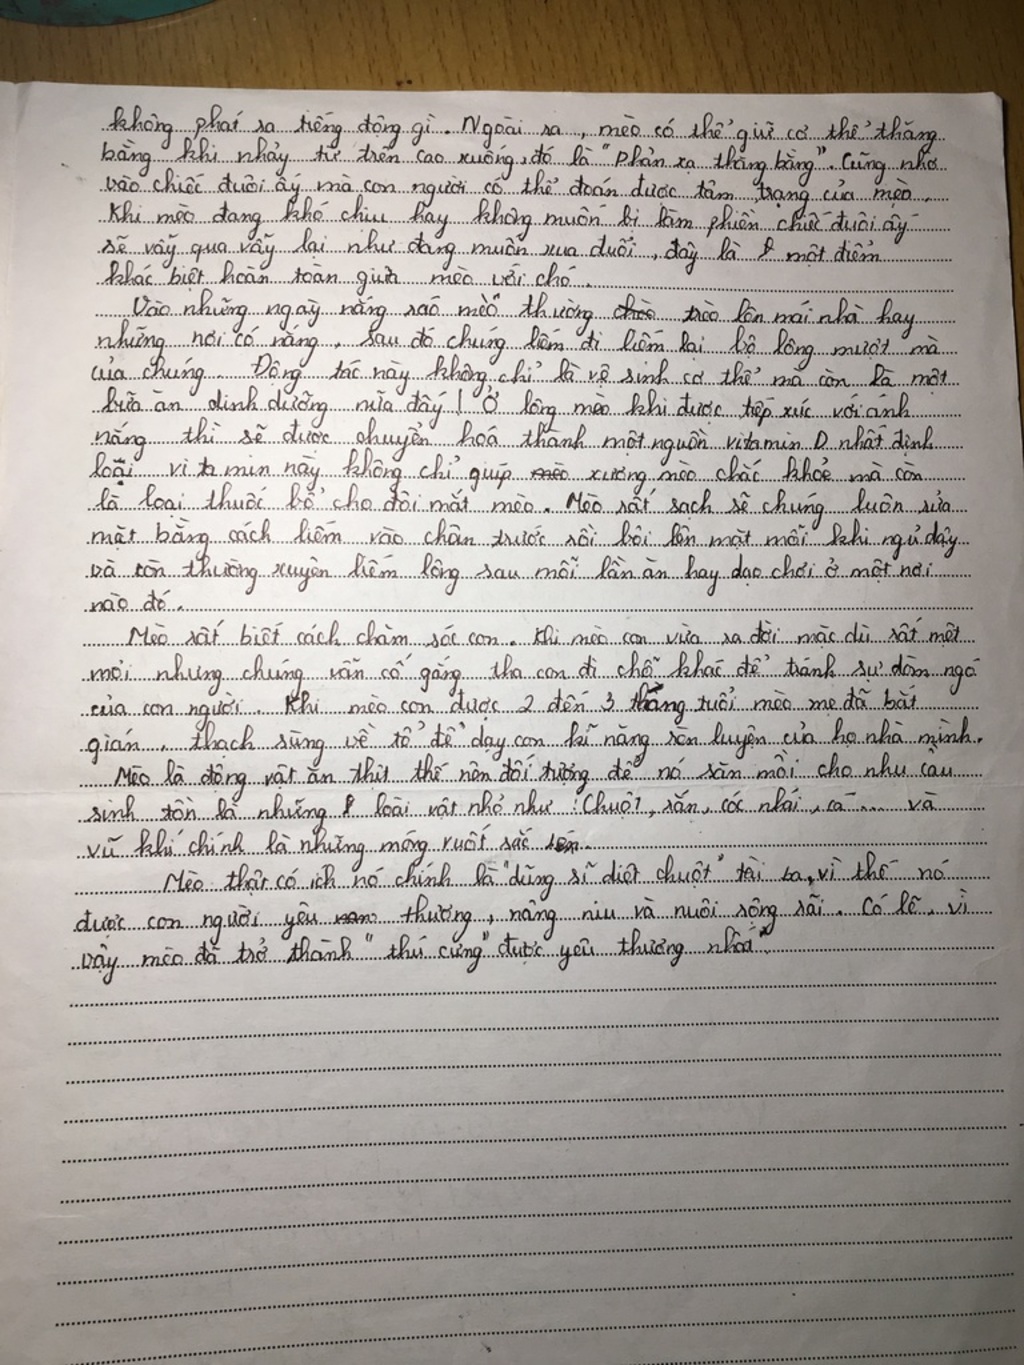 không phát ra tiếng động gì. Ngoài ra, mèo có thể giữ cơ thể thăng
bằng khi nhảy từ trên cao xuống, đó là "phản xạ thăng bằng". Cũng nhờ
vào chiếc đuôi ấy mà con người có thể đoán được tâm trạng của mèo.
Khi mèo đang khó chịu hay không muốn bị làm phiền chiếc đuôi ấy
sẽ vẫy qua vẫy lại như đang muốn xua đuổi, đây là một điểm
khác biệt hoàn toàn giữa mèo với chó.
Vào những ngày nắng ráo mèo thường trèo lên mái nhà hay
những nơi có nắng, sau đó chúng liếm đi liếm lại bộ lông mượt mà
của chúng. Động tác này không chỉ là vệ sinh cơ thể mà còn là một
bữa ăn dinh dưỡng nữa đấy! Ở lông mèo khi được tiếp xúc với ánh
nắng thì sẽ được chuyển hoá thành một nguồn vitamin D nhất định
loại vitamin này không chỉ giúp xương mèo chắc khoẻ mà còn
là loại thuốc bổ cho đôi mắt mèo. Mèo rất sạch sẽ chúng luôn rửa
mặt bằng cách liếm vào chân trước rồi bôi lên mặt mỗi khi ngủ dậy
và còn thường xuyên liếm lông sau mỗi lần ăn hay dạo chơi ở một nơi
nào đó.
Mèo rất biết cách chăm sóc con. Khi mèo con vừa ra đời mặc dù rất mệt
mỏi nhưng chúng vẫn cố gắng tha con đi chỗ khác để tránh sự dòm ngó
của con người. Khi mèo con được 2 đến 3 tháng tuổi mèo mẹ đã bắt
gián, thạch sùng về tổ để dạy con kĩ năng rèn luyện của họ nhà mình.
Mèo là động vật ăn thịt thế nên đối tượng để nó săn mồi cho nhu cầu
sinh tồn là những loài vật nhỏ như: Chuột, rắn, cóc nhái, cá.... và
vũ khí chính là những móng vuốt sắc
Mèo thật có ích nó chính là "dũng sĩ diệt chuột" tài ba, vì thế nó
được con người yêu thương, nâng niu và nuôi rộng rãi. Có lẽ, vì
vậy mèo đã trở thành "thú cưng" được yêu thương nhất"